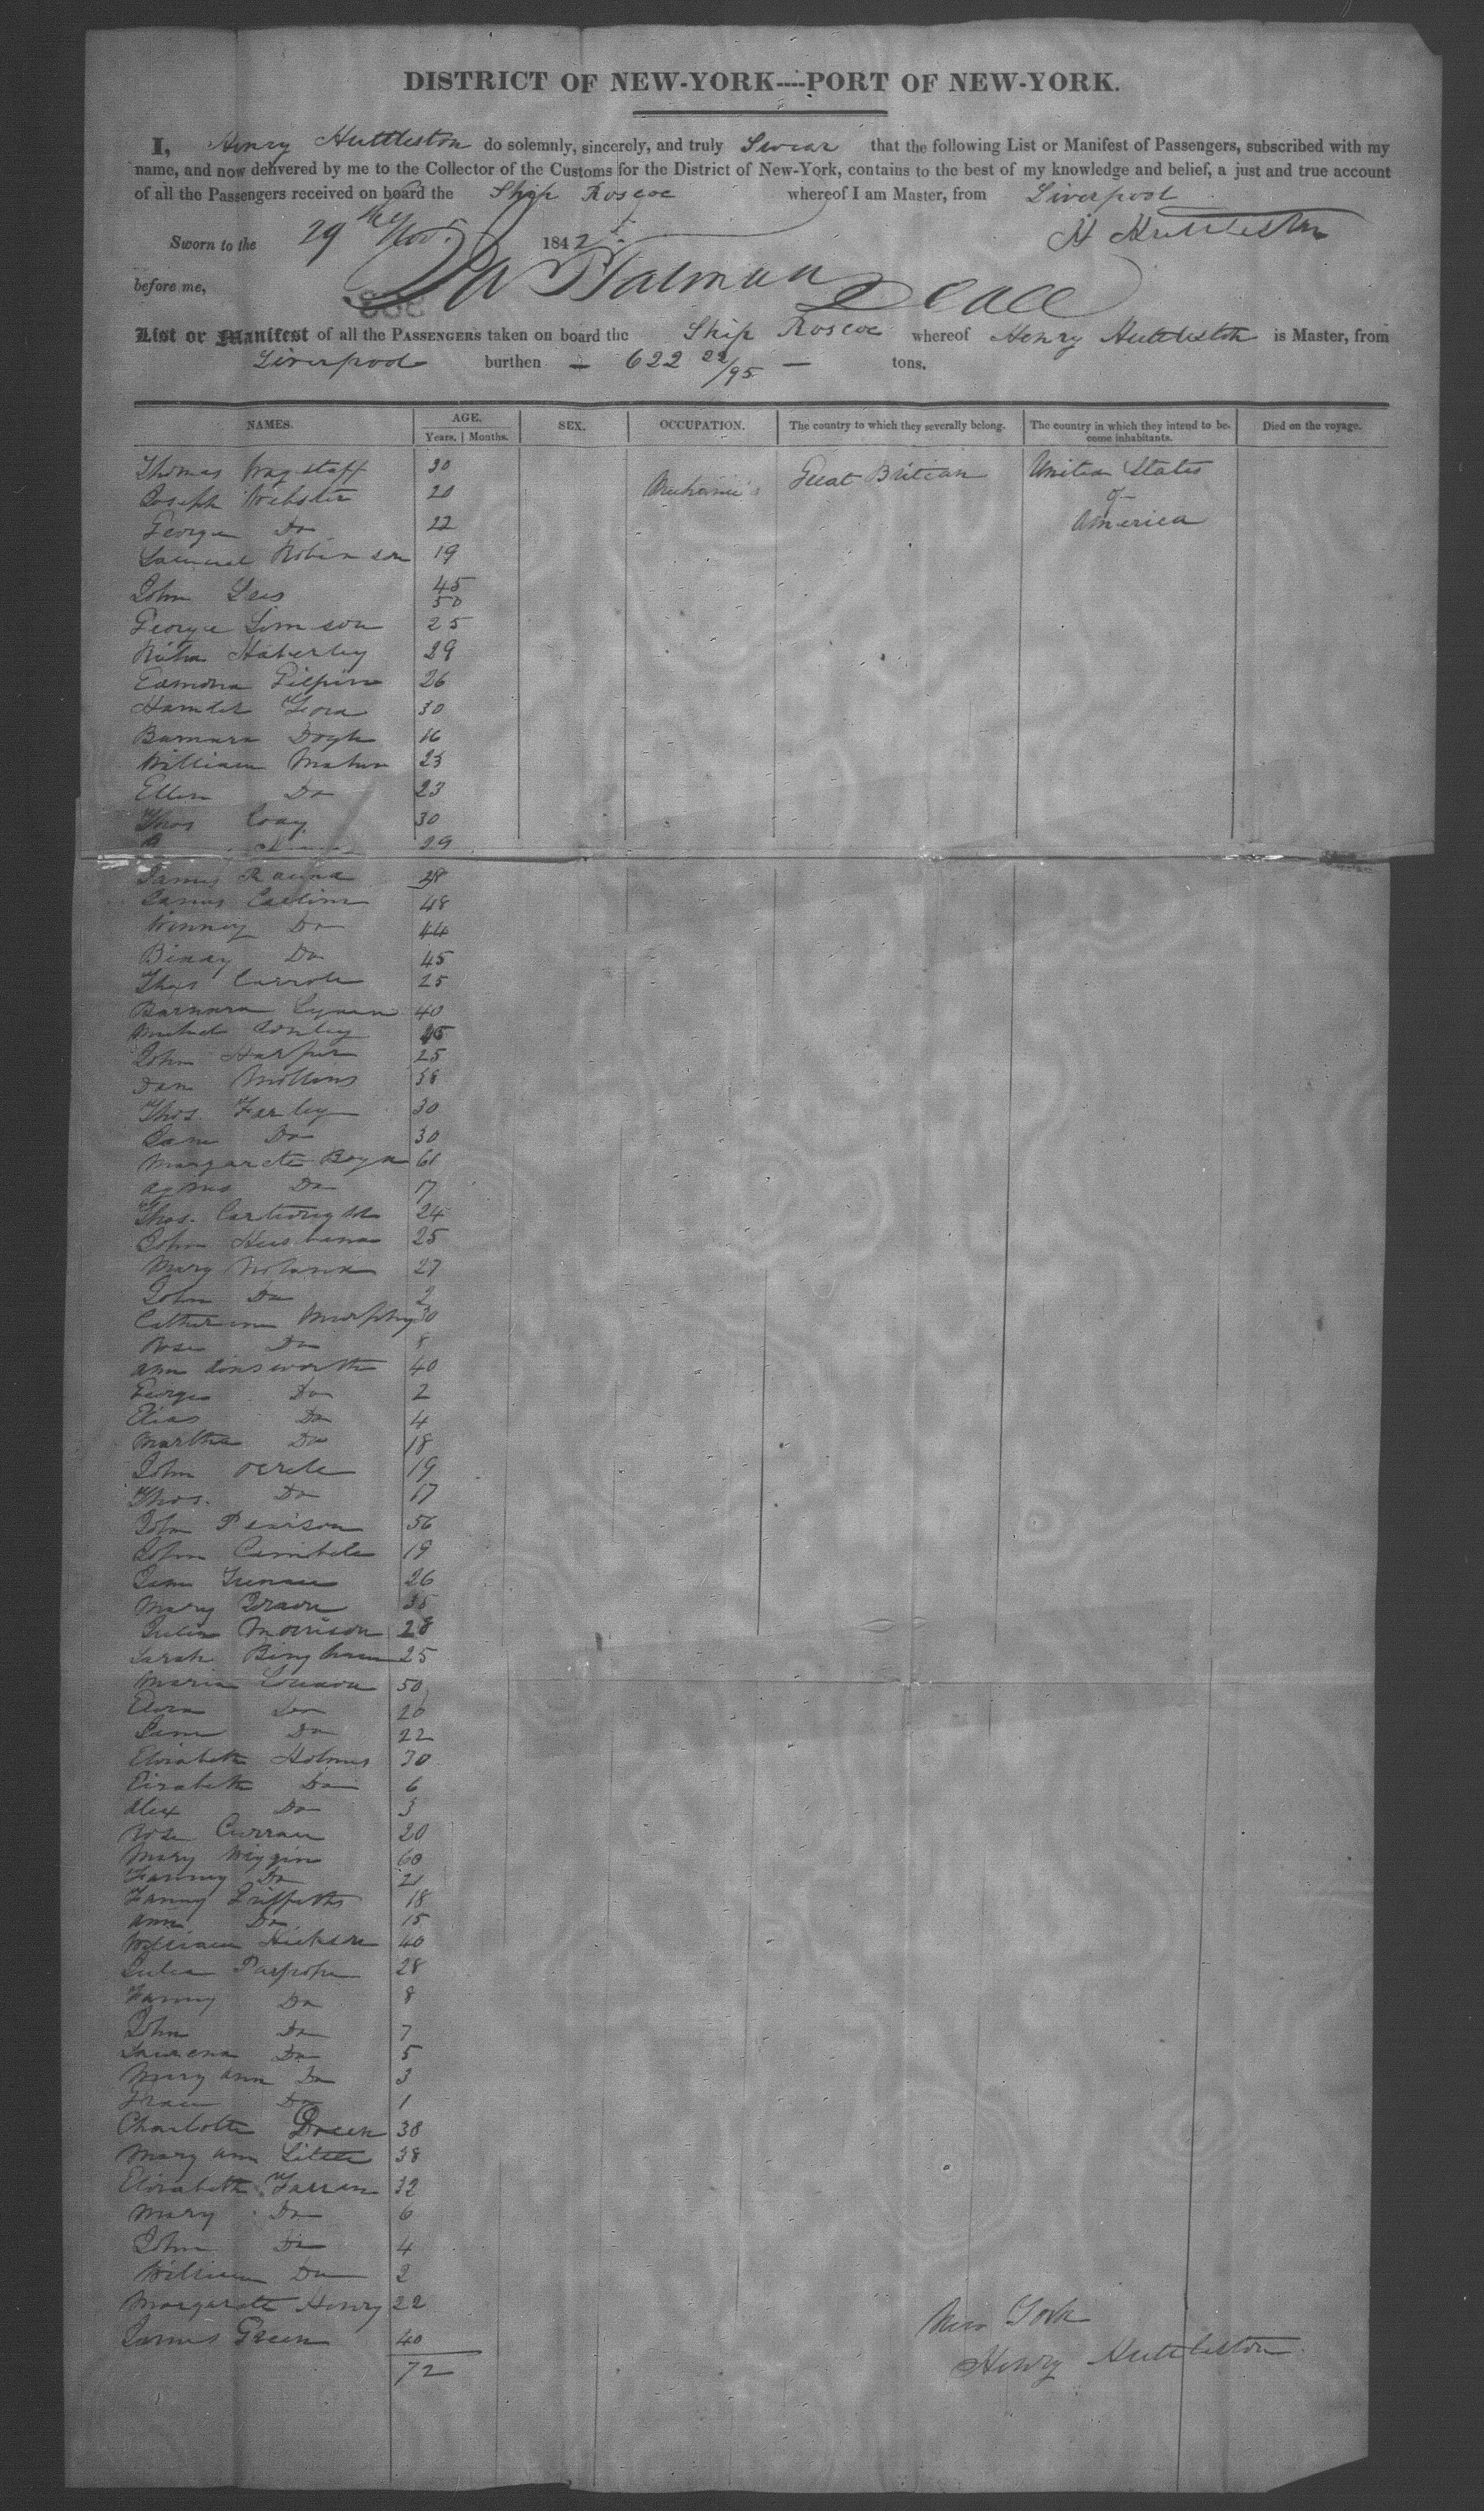 DISTRICT OF NEW-YORK----PORT OF NEW-YORK.
I, Henry Huttleston do solemnly, sincerely, and truly Swear that the following List or Manifest of Passengers, subscribed with my
name, and now delivered by me to the Collector of the Customs for the District of New-York, contains to the best of my knowledge and belief, a just and true account
of all the Passengers received on board the Ship Roscoe whereof I am Master, from Liverpool
Sworn to the 29th Nov. 1842 H Huttleston
before me,
List or Manifest of all the PASSENGERS taken on board the Ship Roscoe whereof Henry Huttleston is Master, from
Liverpool burthen - 622 22/95 - tons.
NAMES. AGE. SEX. OCCUPATION. The country to which they severally belong. The country in which they intend to be- Died on the voyage.
Years. Months. come inhabitants.
Thomas Wagstaff 30 Great Britian United States
Joseph Webster 20 Mechanics of
George Do 22 America
Samuel Robinson 19
John Lees 45
50
George Simson 25
Haberley 29
Edmond Gilpin 26
30
Doyle 16
William Mahon 23
Ellen Do 23
Thos Coay 30
29
James 28
James 48
Winney Do 44
Do 45
Thos Carrole 25
40
Conley
John Harper 25
Dan Mollens 38
Thos. Farley 30
Jane Do 30
Margarete Boyd 61
Agnes Do 17
Thos. Cartwright 24
John Husband 25
Mary 27
John Do 2
Catherine Murphy 30
Rose Do 8
Ann Ainsworth 40
George Do 2
Elias Do 4
Martha Do 18
John 19
Thos. Do 17
John Pearson 56
John Cambele 19
Jane 26
Mary 35
Julia Morrison 28
Sarah Bingham 25
Maria 50
Do 20
Jane Do 22
Elizabeth Holmes 30
Elizabeth Do 6
Alex Do 3
Rose Curran 20
Mary Wiggin 60
Fanny Do 21
Fanny Griffeths 18
Ann Do 15
William Hickson 40
Julia 28
Fanny Do 8
John Do 7
Do 5
Mary Ann Do 3
Do 1
Charlotte Green 38
Mary Ann Little 38
Elizabeth Farren 32
Mary Do 6
John Do 4
William Do 2
Margarete Henry 22
James Green 40
72
New York
Henry Huttleston